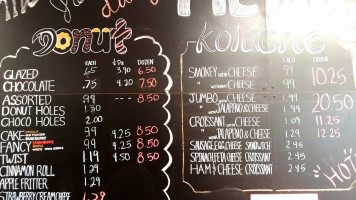 Donut
EACH ½ Dz DOZEN
GLAZED .65 3.70 6.50
CHOCOLATE .75 4.20 7.50
ASSORTED .99 8.50
DONUT HOLES 1.00
CHOCO HOLES 2.00
CAKE .99 4.25 8.50
FANCY .99 4.25 8.50
TWIST 1.19 4.50 8.50
CINNAMON ROLL 1.29
APPLE FRITTER 1.29
STRAWBERRY CREAM CHEESE 1.29
kolache
EACH DOZEN
SMOKEY CHEESE .99 10.25
CHEESE .99
JUMBO CHEESE 20.50
JALAPENO & CHEESE
CROISSANT CHEESE 1.09 11.25
" JALAPENO & CHEESE 1.19 12.25
SAUSAGE EGG CHEESE SANDWICH 2.45
SPINACH FETA CHEESE CROISSANT 2.45
HAM & CHEESE CROISSANT 2.45
HOT